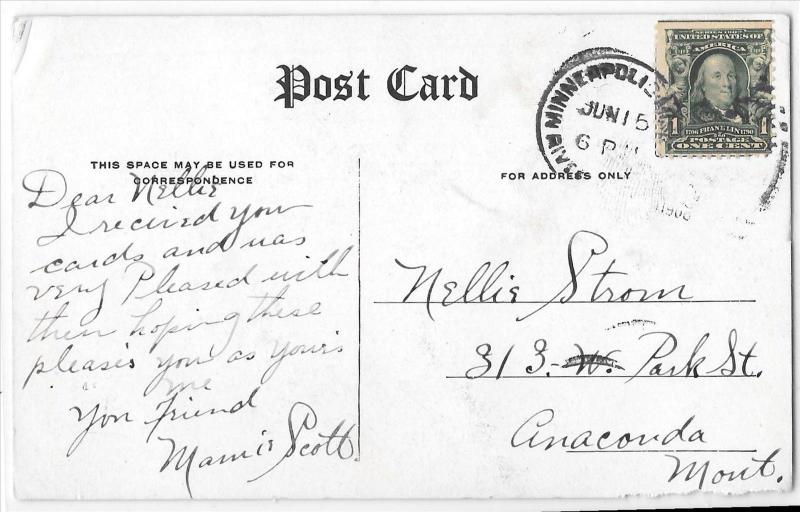 Post Card
THIS SPACE MAY BE USED FOR
CORRESPONDENCE
Dear Nellie
I recieved you
cards and was
very Pleased with
them hoping these
pleases you as yours
me
You friend
Mamie Scott
FOR ADDRESS ONLY
MINNEAPOLIS
JUN 15
6 P
1908
SERIES 1902
UNITED STATES OF
AMERICA
1706 FRANKLIN 1790
1 1
POSTAGE
ONE CENT
Nellie Strom
313 W. Park St.
Anaconda
Mont.